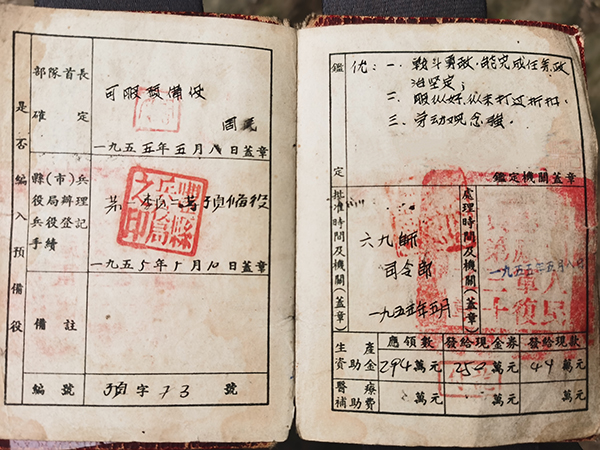 是否編入預備役
部隊首長
確定
可服預備役
一九五五年五月八日蓋章
縣(市)兵
役局辦理
兵役登記
手續
一九五5年5月10日蓋章
備註
編號 預字73號
鑑定
优:一、戰斗勇敢,能完成任务,政
治坚定;
二、服从好,从未打过折扣。
三、劳动观念強。
鑑定機關蓋章
批准時間及機關(蓋章)
六九師
司令部
一九五五年五月
處理時間及機關(蓋章)
一九五五年五月八日
應領數 發給現金券 發給現款
生產資助金 294萬元 250萬元 44萬元
醫療補助費 萬元 萬元 萬元